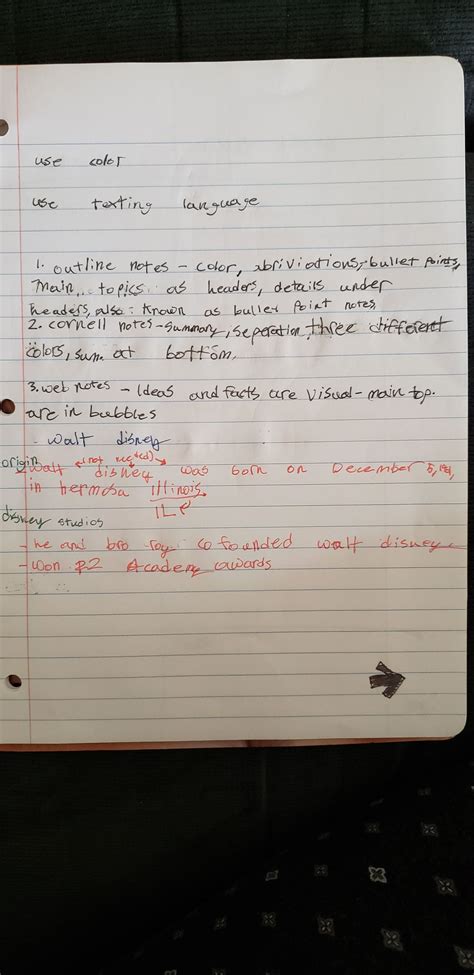 use color
use texting language
1. outline notes - color, abriviations, bullet points,
Main topics as headers, details under
headers, also: known as bullet point notes,
2. cornell notes - summary, seperation, three different
colors, sum. at bottom.
3. web notes - Ideas and facts are visual - main top.
are in bubbles
walt disney
(not needed)
origin - walt disney was born on December 5, 
in hermosa illinois.
disney studios
- he and bro roy cofounded walt disney.
- won Academy awards